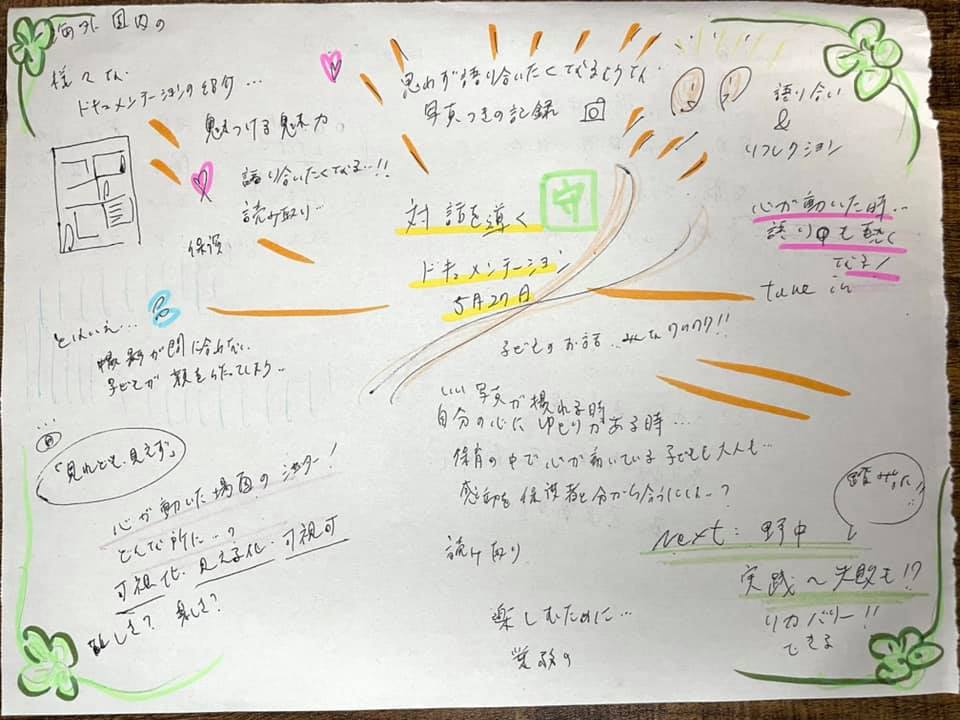 海外国内の
様々な
ドキュメンテーションの紹介...
魅きつける魅力
語り合いたくなる...!!
読み取り...
保護
思わず語り合いたくなるような
写真つきの記録
語り合い
&
リフレクション
対話を導く
守
ドキュメンテーション
5月27日
心が動いた時...
語り口も熱く
なる!
tune in
とはいえ...
撮影が間に合わない
子どもが顔を作ってしまう...
子どものお話...みんなワクワク!!
いい写真が撮れる時
自分の心にゆとりがある時...
保育の中で心が動いている子どもも大人も...
感動を保護者と分かち合うには...?
「見れども見えず」
心が動いた場面の
どんな所に...?
可視化、見える化、可視可
難しさ?
読み取り
Next: 野中
実践〜失敗も!?
リカバリー!!
できる
楽しむために...
業務の